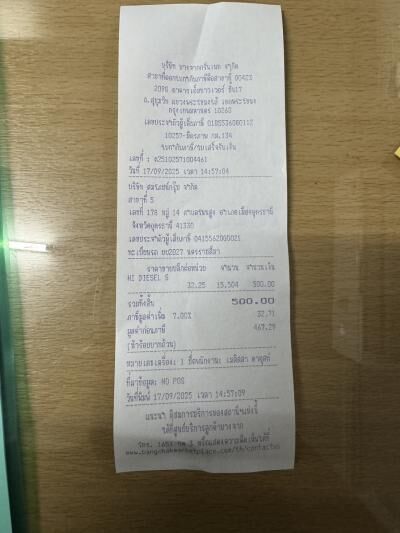 บริษัท บางจากกรีนเนท จำกัด
สาขาที่ออกใบกำกับภาษีคือสาขาที่ 00421
2098 อาคารเอ็มทาวเวอร์ ชั้น7
ถ.สุขุมวิท แขวงพระโขนงใต้ เขตพระโขนง
กรุงเทพมหานคร 10260
เลขประจำตัวผู้เสียภาษี 0105536080112
10257-มิตรภาพ กม.134
ใบกำกับภาษี/ใบเสร็จรับเงิน
เลขที่ : 025102571004461
วันที่ 17/09/2025 เวลา 14:57:04
บริษัท จำกัด
สาขาที่ 5
เลขที่ 178 หมู่ 14 อำเภอเมืองอุดรธานี
จังหวัดอุดรธานี 41330
เลขประจำตัวผู้เสียภาษี 0415562000021
ทะเบียนรถ 2027 นครราชสีมา
ราคาขายปลีกต่อหน่วย จำนวน จำนวนเงิน
HI DIESEL S
32.25 15.504 500.00
รวมทั้งสิ้น 500.00
ภาษีมูลค่าเพิ่ม 7.00% 32.71
มูลค่าก่อนภาษี 467.29
(ห้าร้อยบาทถ้วน)
หมายเลขเครื่อง: 1 ชื่อพนักงาน: เมลิสสา
ที่มาข้อมูล: MO POS
วันที่พิมพ์ 17/09/2025 เวลา 14:57:09
แนะนำ ติชมการบริการของสถานีฯแห่งนี้
ได้ที่ศูนย์บริการลูกค้าบางจาก
โทร. 1651 กด 3 หรือแสดงความคิดเห็นได้ที่
www.bangchakmarketplace.com/th/contactus